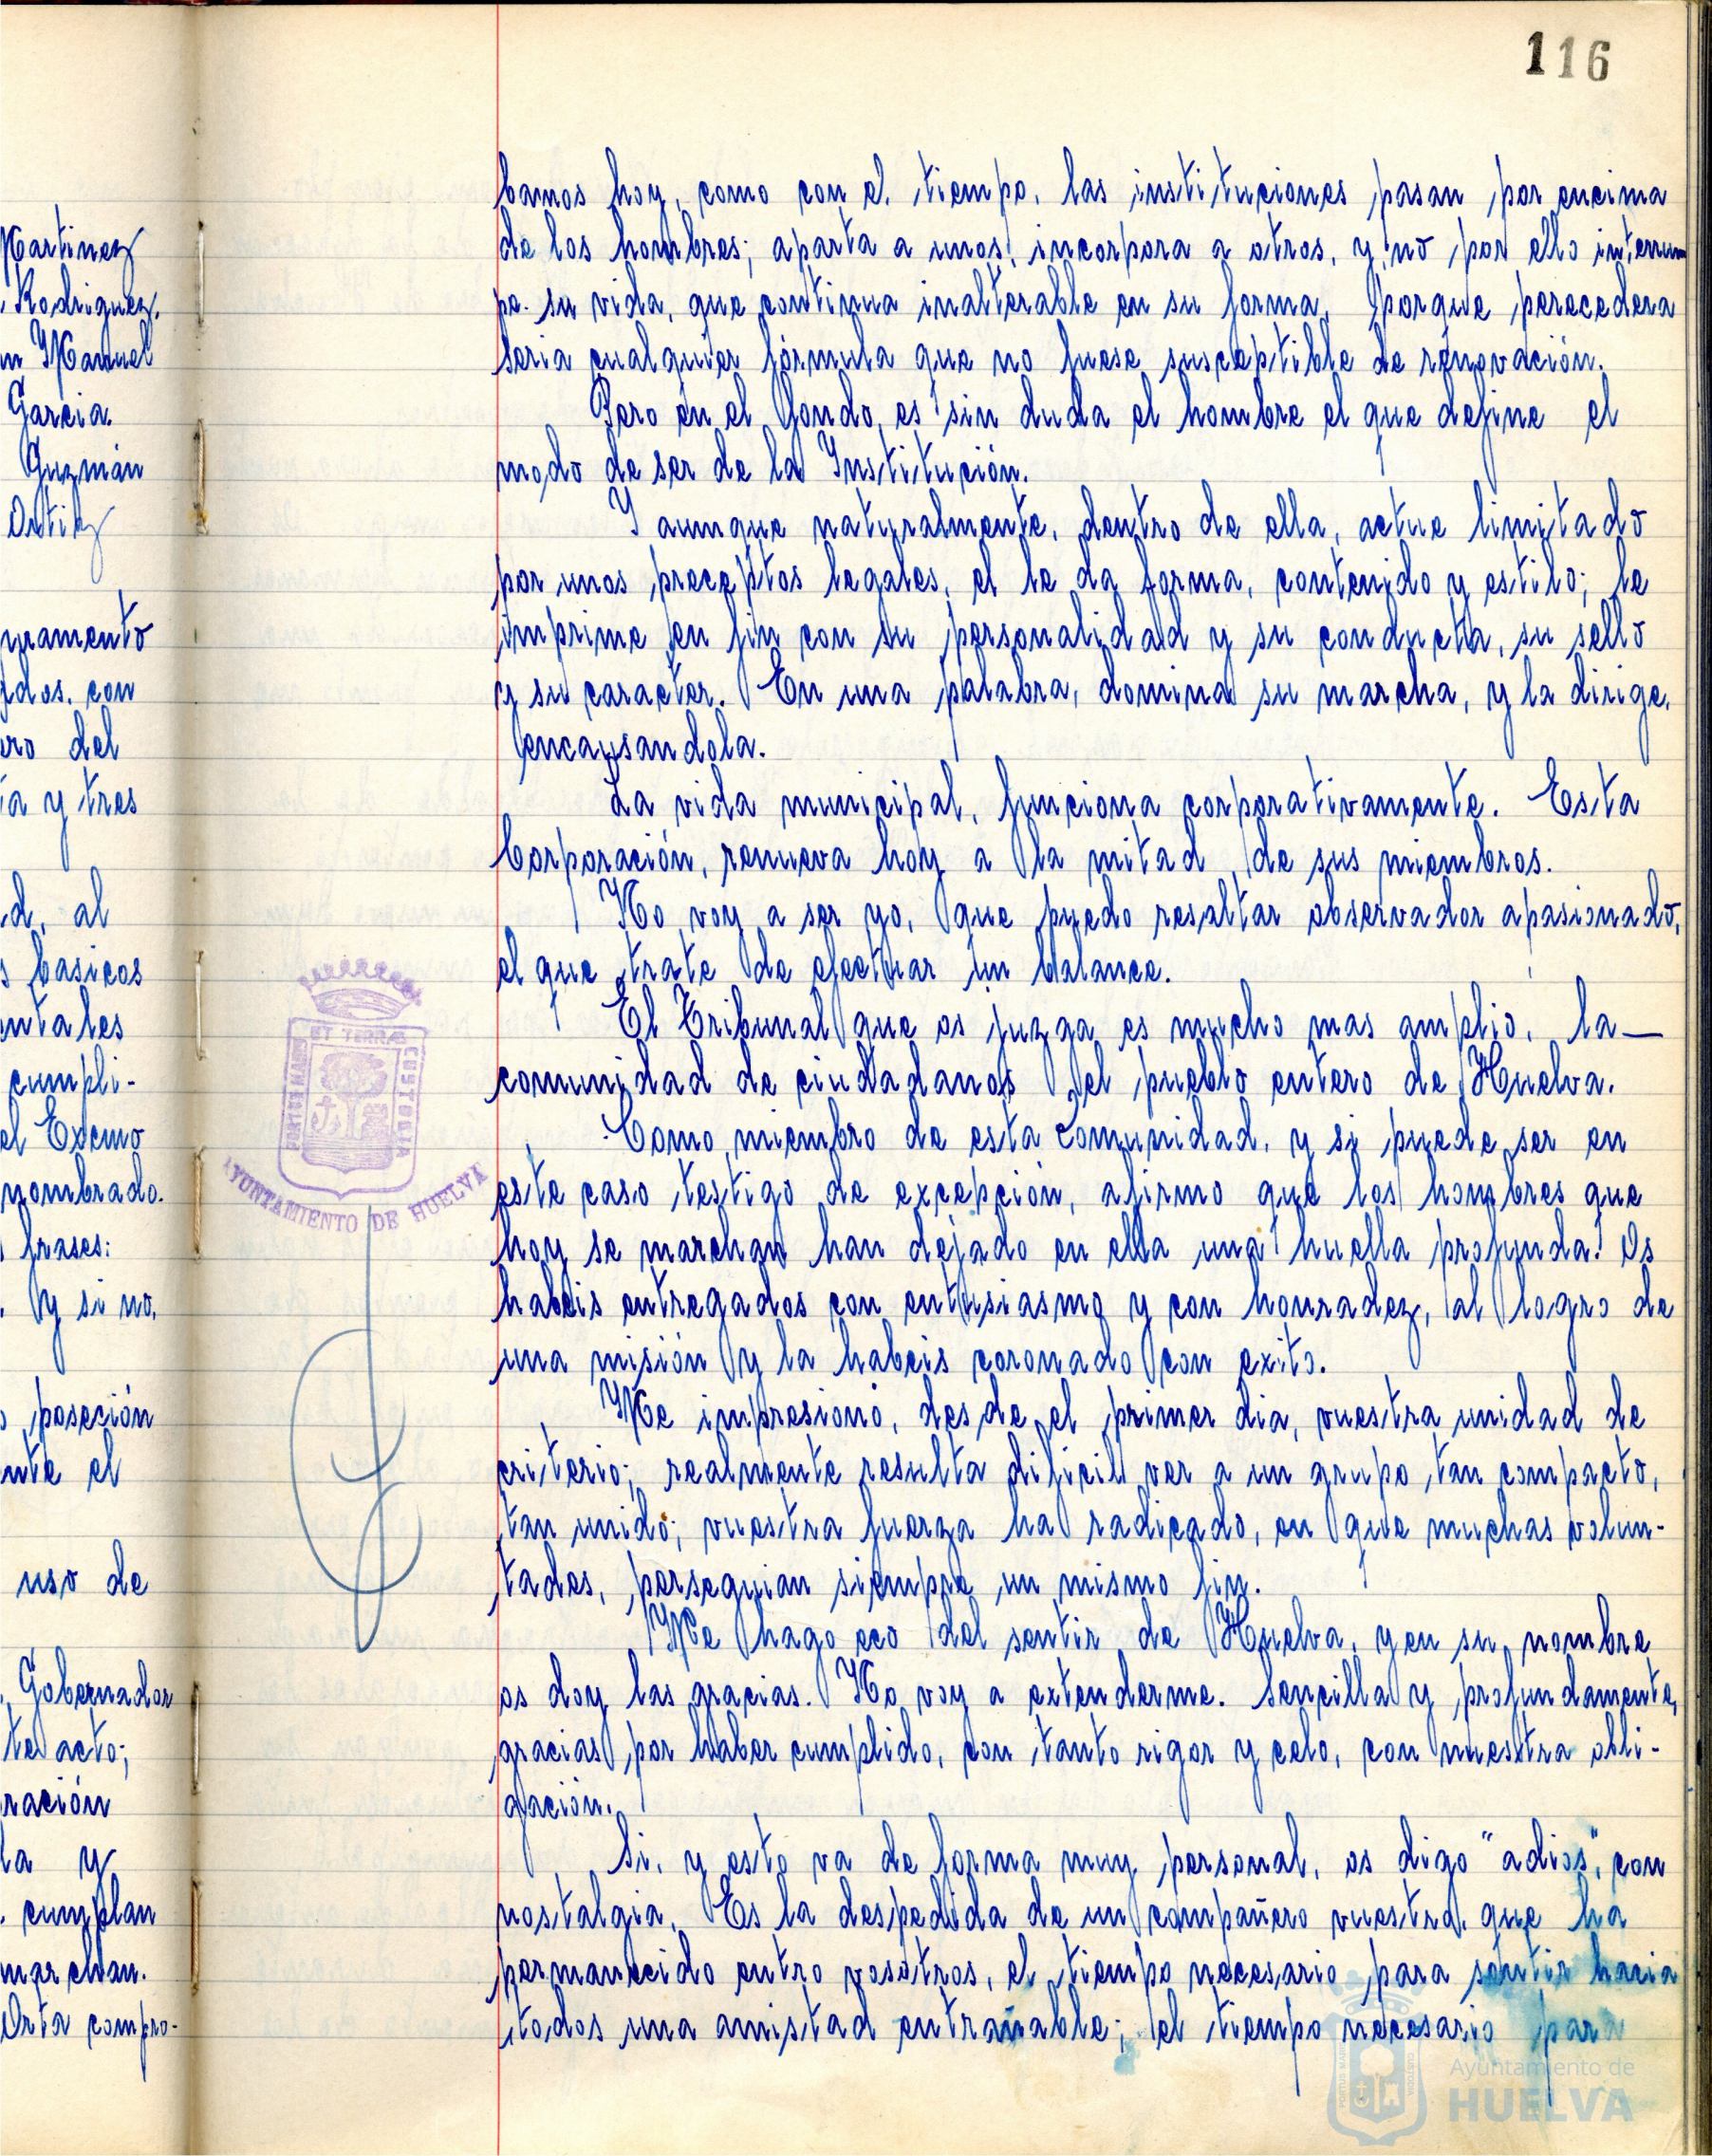 116
Martinez
Rodriguez.
n Manuel
Garcia.
Guzmán
Ortiz
uramento
dos, con
ro del
ia y tres
d, al
s basicos
entales
cumpli-
el Excmo
nombrado.
frases:
. y si no,
o posección
nte el
uso de
Gobernador
te acto;
ración
la y
. cumplan
marchan.
Orta compro-
bamos hoy, como con el tiempo, las instituciones pasan por encima
de los hombres; aparta a unos, incorpora a otros, y no por ello interrum
pe su vida, que continua inalterable en su forma, porque perecedera
seria cualquier fórmula que no fuese susceptible de renovación.
Pero en el fondo, es sin duda el hombre el que define el
modo de ser de la Institución.
Y aunque naturalmente, dentro de ella, actue limitado
por unos preceptos legales, el le da forma, contenido y estilo; le
imprime en fin con su personalidad y su conducta, su sello
y su caracter. En una palabra, domina su marcha, y la dirige,
encausandola.
La vida municipal, funciona corporativamente. Esta
Corporación, renueva hoy a la mitad de sus miembros.
No voy a ser yo, que puedo resaltar observador apasionado,
el que trate de efectuar un balance.
El Tribunal que os juzga es mucho mas amplio, la—
comunidad de ciudadanos del pueblo entero de Huelva.
Como miembro de esta Comunidad, y si puede ser en
este caso testigo de excepción, afirmo que los hombres que
hoy se marchan han dejado en ella una huella profunda. Os
habeis entregados con entusiasmo y con honradez, al logro de
una misión y la habeis coronado con exito.
Me impresionó, desde el primer dia, vuestra unidad de
criterio; realmente resulta dificil ver a un grupo tan compacto,
tan unido; vuestra fuerza ha radicado, en que muchas volun-
tades, perseguian siempre un mismo fin.
Me hago eco del sentir de Huelva, y en su nombre
os doy las gracias. No voy a extenderme. Sencilla y profundamente,
gracias por haber cumplido, con tanto rigor y celo, con nuestra obli-
gación.
Si, y esto va de forma muy personal, os digo "adios", con
nostalgia. Es la despedida de un compañero vuestro, que ha
permanecido entro vosotros, el tiempo necesario para sentir hacia
todos una amistad entrañable; el tiempo necesario para
PORTUS MARIS ET TERRAE CUSTODIA
AYUNTAMIENTO DE HUELVA
Ayuntamiento de
HUELVA